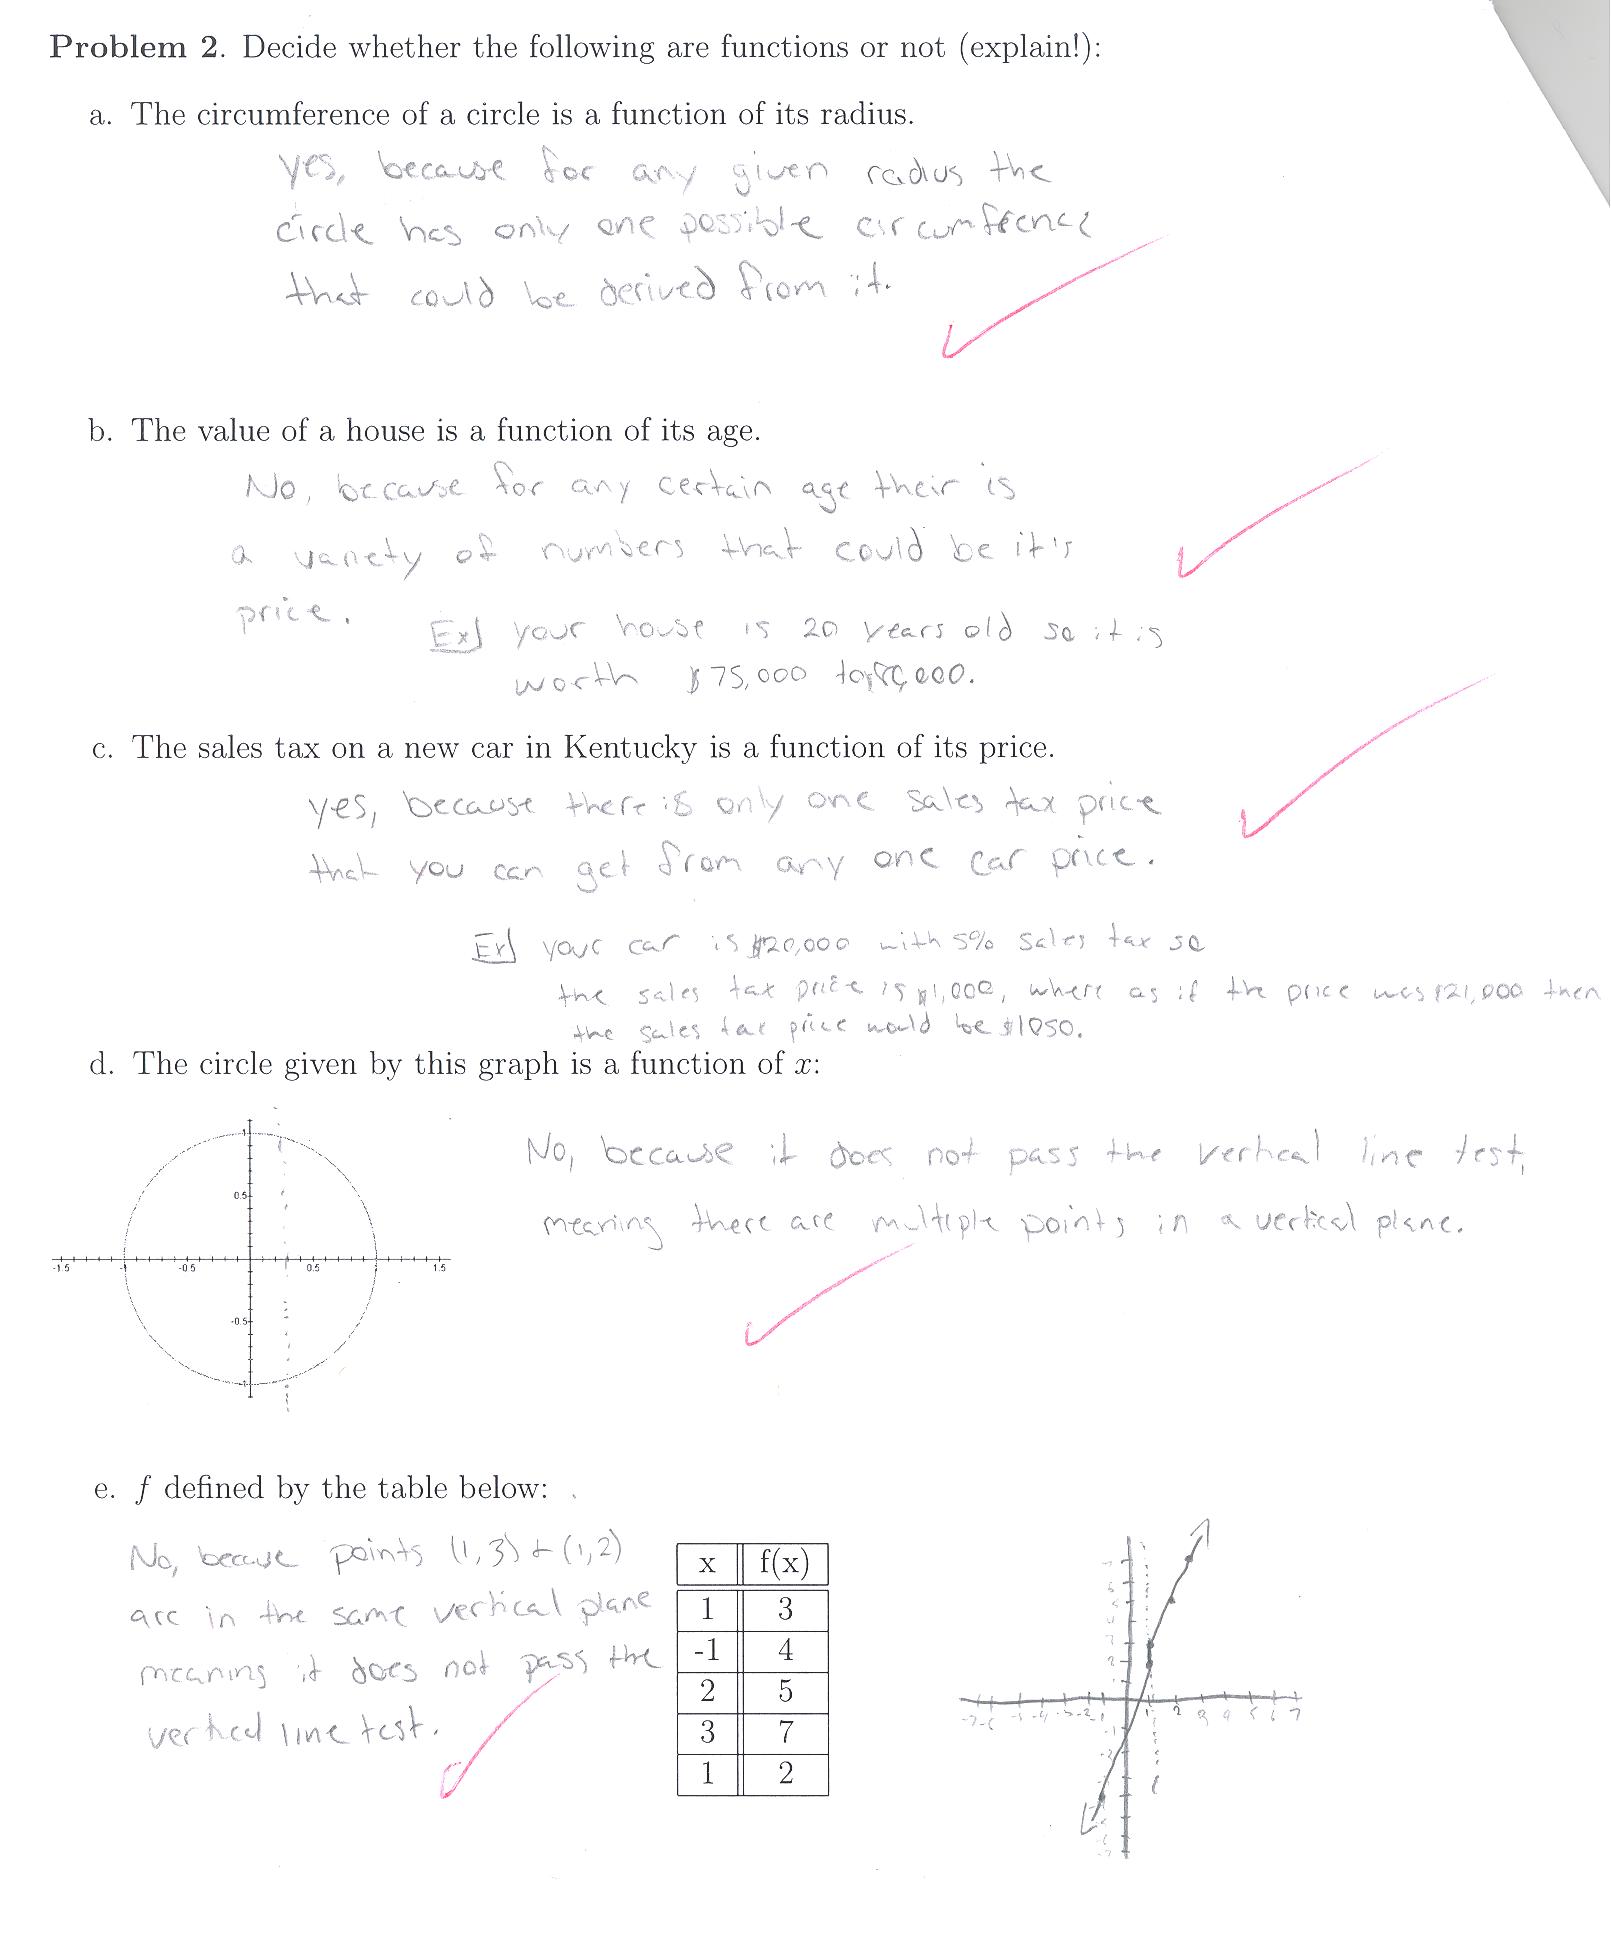 Problem 2. Decide whether the following are functions or not (explain!):
a. The circumference of a circle is a function of its radius.
yes, because for any given radius the
circle has only one possible circumfrence
that could be derived from it.
b. The value of a house is a function of its age.
No, because for any certain age their is
a variety of numbers that could be it's
price.
Ex] your house is 20 years old so it is
worth $75,000 to
c. The sales tax on a new car in Kentucky is a function of its price.
yes, because there is only one sales tax price
that you can get from any one car price.
Ex] your car is $20,000 with 5% sales tax so
the sales tax price is $1,000, where as if the price was $21,000 then
the sales tax price would be $1050.
d. The circle given by this graph is a function of x:
No, because it does not pass the vertical line test,
meaning there are multiple points in a vertical plane.
1
0.5
-1.5 -1 -0.5 0.5 1 1.5
-0.5
-1
e. f defined by the table below:
No, because points (1,3) + (1,2)
are in the same vertical plane
meaning it does not pass the
vertical line test.
x f(x)
1 3
-1 4
2 5
3 7
1 2
2 3 4 5 6 7